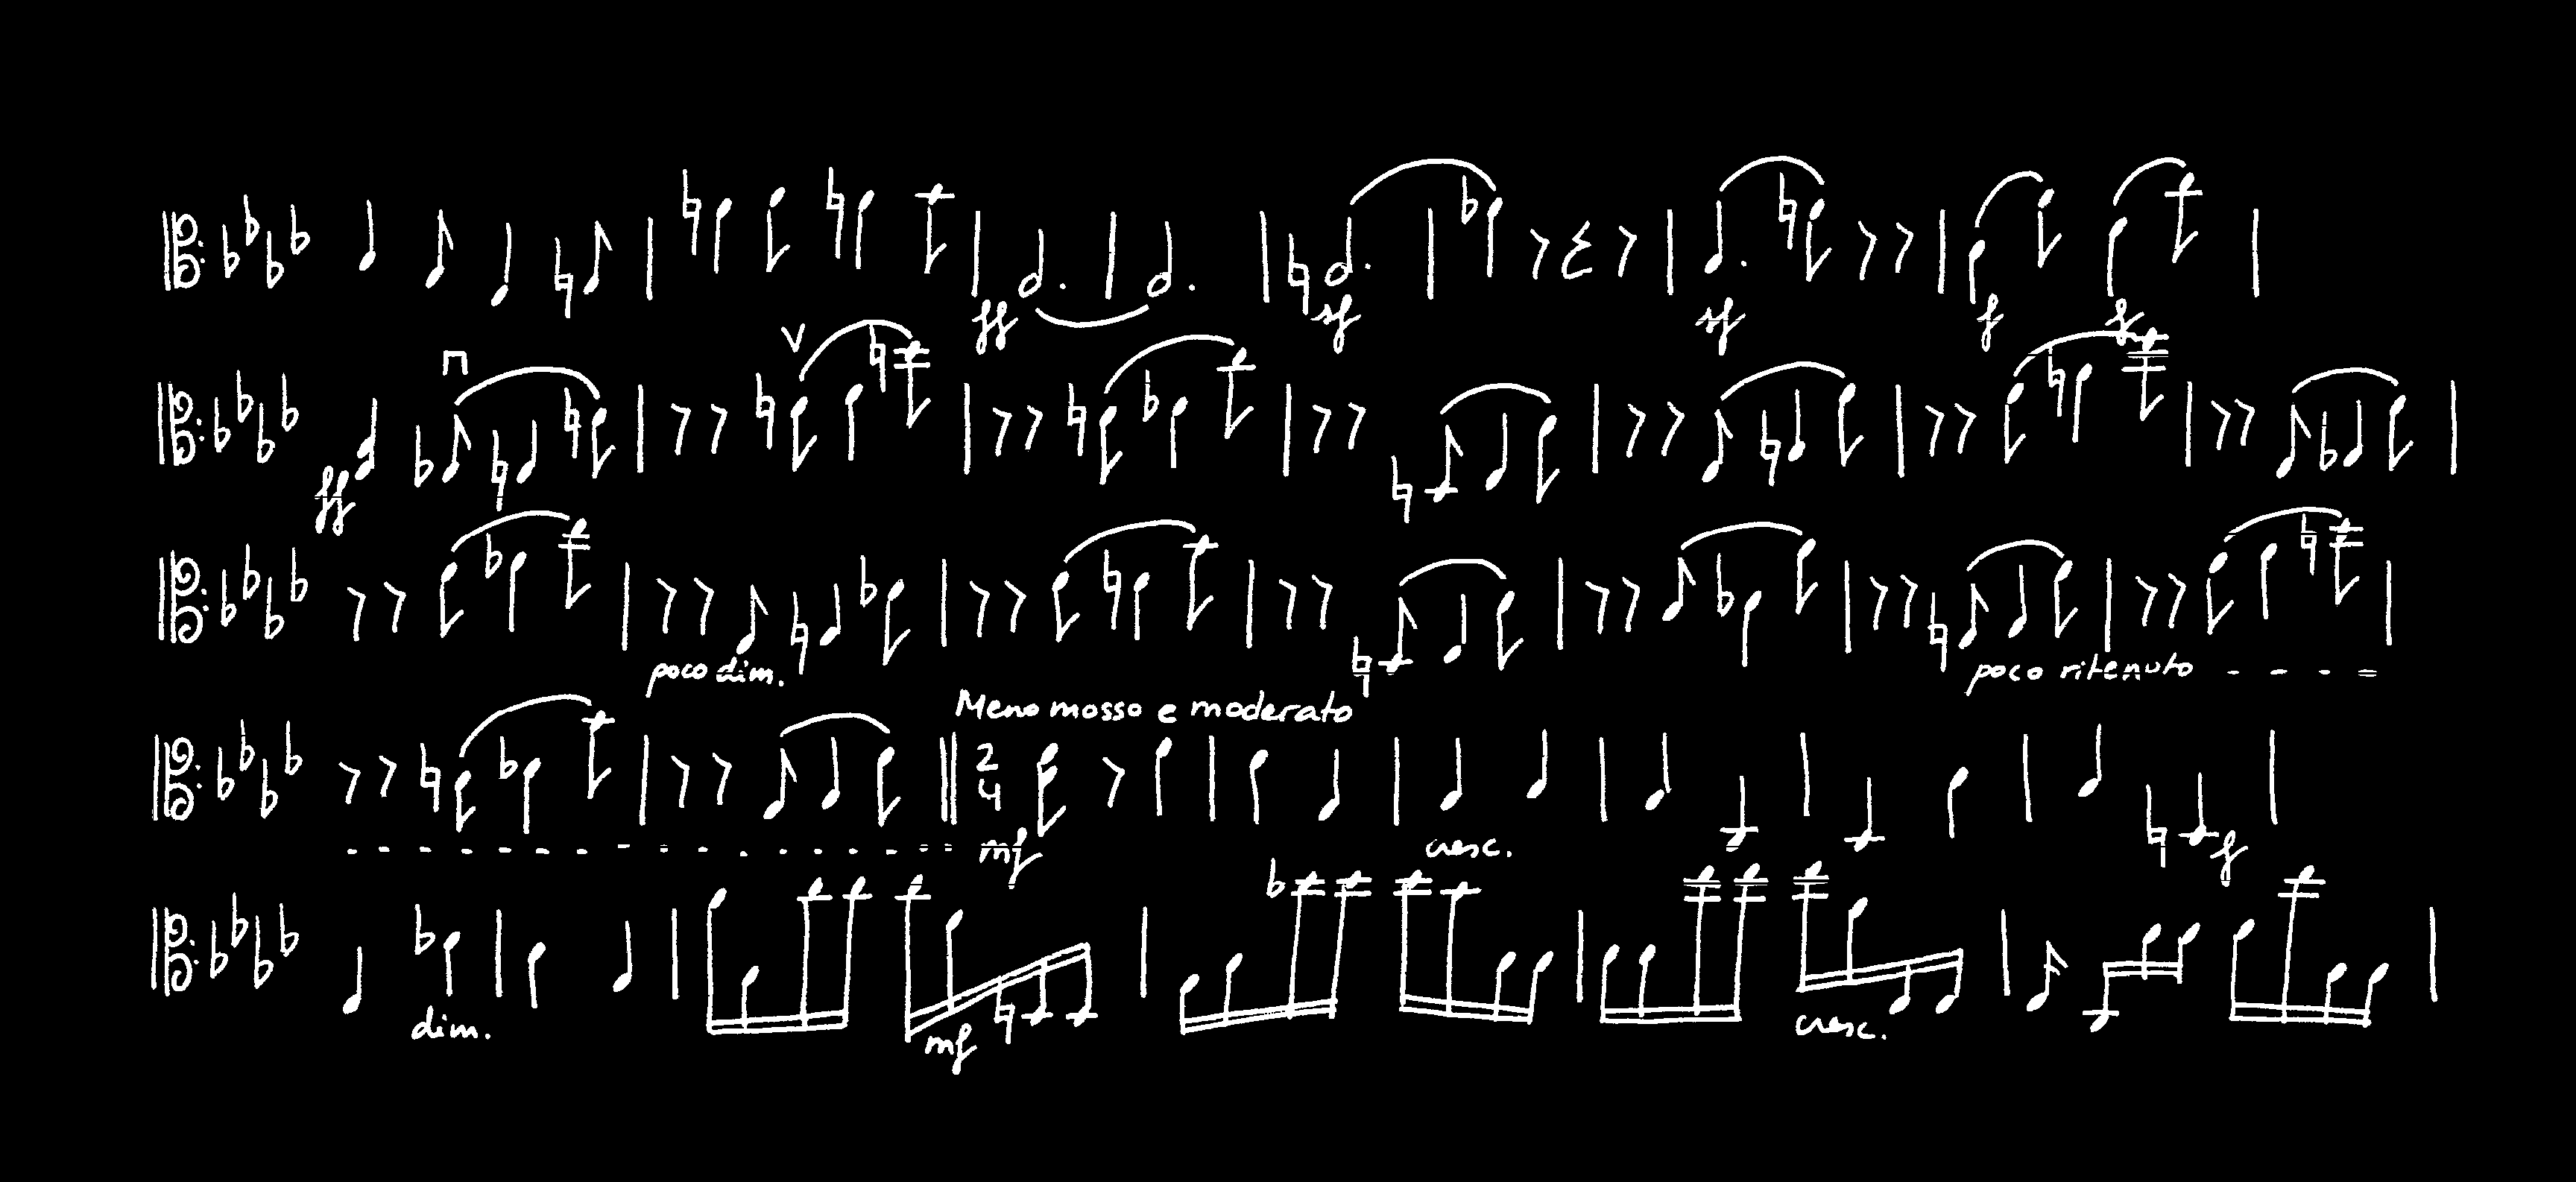 ff sf sf f f
ff
poco dim. poco ritenuto
Meno mosso e moderato
2 4 mf cresc. f
dim. mf cresc.